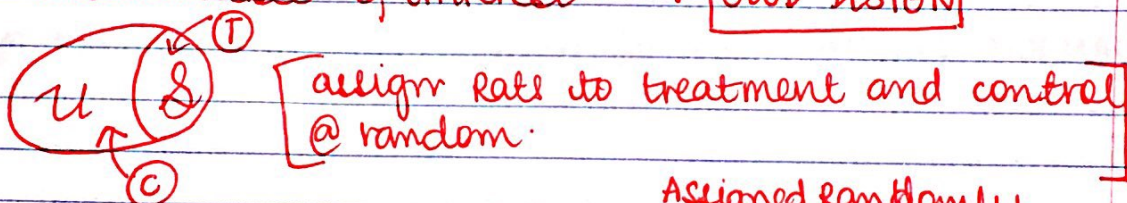 T
U S assign Rats to treatment and control
@ random.
C
Assigned Randomly